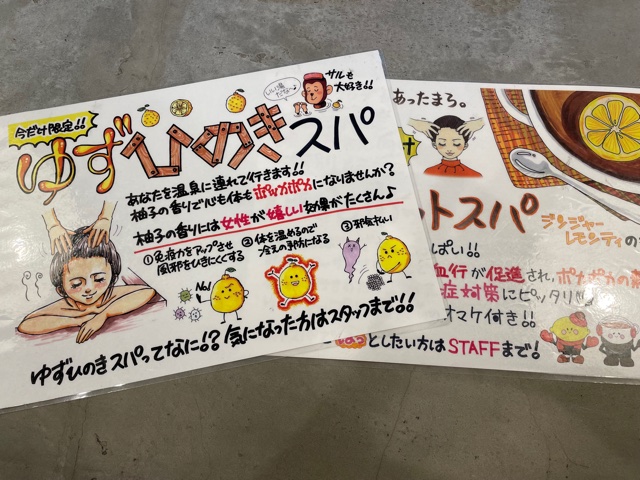 今だけ限定!!
ゆずひのきスパ
いい湯だな〜♪
サルも
大好き!!
あなたを温泉に連れて行きます!!
柚子の香りで心も体もポッカポカになりませんか?
柚子の香りには女性が嬉しい効果がたくさん♪
①免疫力をアップさせ
風邪をひきにくくする
②体を温めるので
冷えの予防になる
③邪気払い
No!
ゆずひのきスパってなに!?気になった方はスタッフまで!!
あったまろ。
ットスパ
ジンジャー
レモンティの
ぱい!!
血行が促進され、ポカポカの
症対策にピッタリ
オマケ付き!!
としたい方はSTAFFまで!